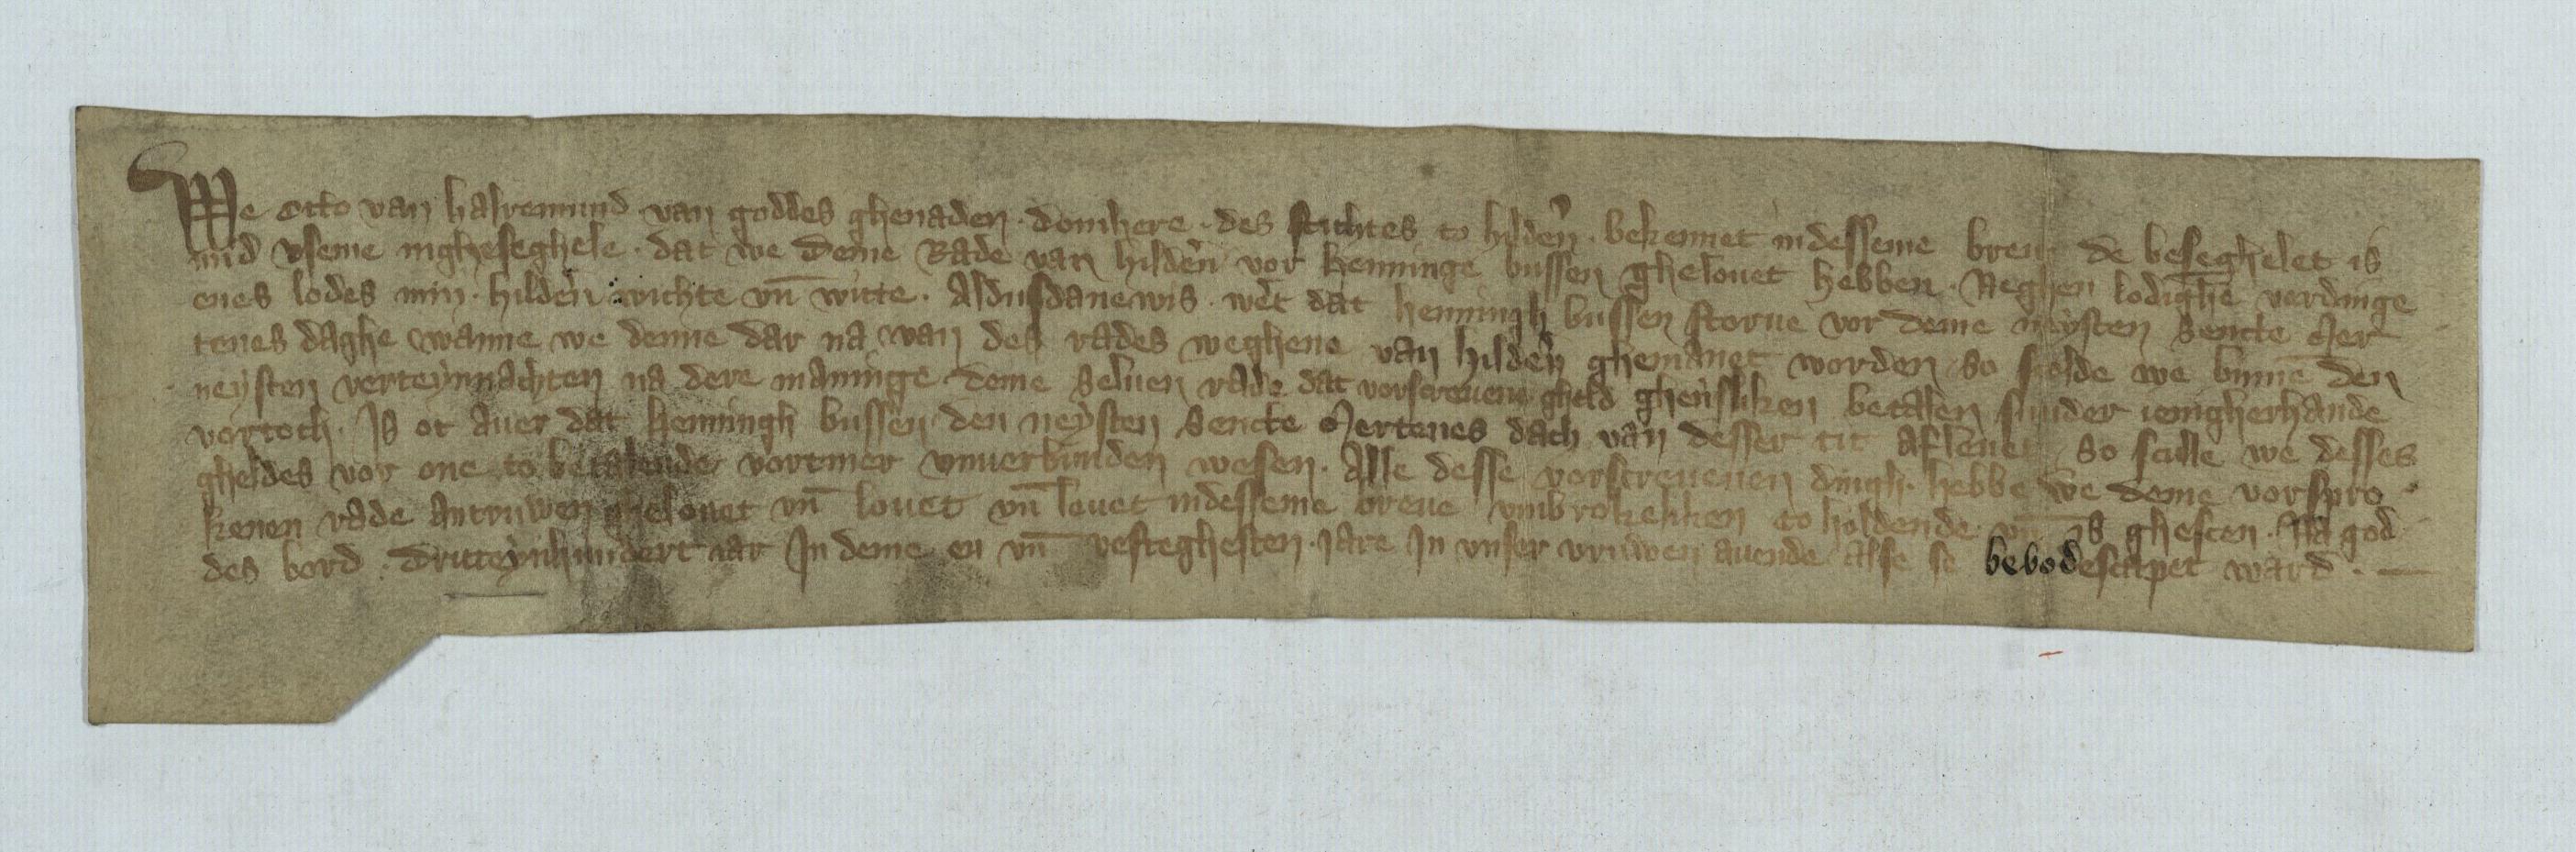 We Otto van halremund van goddes ghenaden · domhere · des stichtes to hilden̄ · bekennet in desseme breue de beseghelet is
mid vseme inghesegele · dat we deme Rade van hilden̄ vor Henninge bussen ghelouet hebben · Neghen lodighe verdinge
enes lodes min · hilden̄ wichte vn̄ witte · Aldusdanewis · wer̄t dat henningh bussen storue vor deme neysten Sencte Mer
tenes daghe wanne we denne dar na van des rades weghene van hilden̄ ghemanet worden · so scolde we binnē den
neysten verteynnachten na dere maninge deme seluen rade dat vorscreuene gheld ghensliken betalen sunder ienigherhande
vortoch · Is ot auer dat henningh bussen den neysten Sencte Mertenes dach van desser tit afleuet so sculle we desses
gheldes vor one to betalende vortmer vnuerbunden wesen · Alle desse vorscreuenen dingh · hebbe we deme vorspro
kenen rade antruwen ghelouet vn̄ louet vn̄ louet in desseme breue vmbrokeliken to holdende · vn̄ is ghescen · Na god
des bord · drutteynhundert iar In deme en vn̄ vefteghesten · iare In vnser vruwen auende alse se bebodescapet ward · —